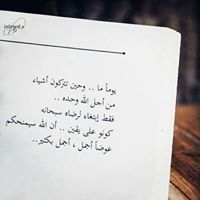 يوماً ما .. وحين تتركون أشياء
من أجل الله وحده ..
فقط إبتغاء لرضاه سبحانه
كونو على يقين .. أن الله سيمنحكم
عوضاً أجمل ، أجمل بكثير..